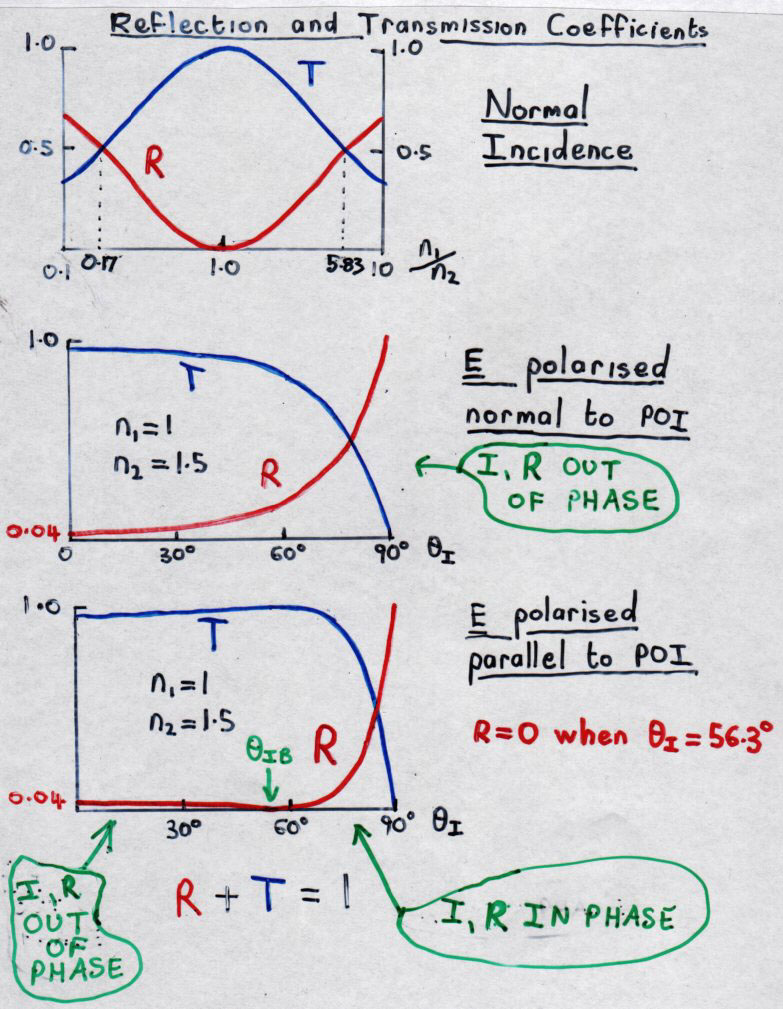 Reflection and Transmission Coefficients
1.0
1.0
T
Normal
Incidence
0.5
0.5
R
0.1
0.17
1.0
5.83
10
n₁/n₂
1.0
T
E polarised
normal to POI
n₁=1
n₂=1.5
R
I, R OUT
OF PHASE
0.04
0
30°
60°
90°
θI
1.0
T
E polarised
parallel to POI
n₁=1
n₂=1.5
R
R=0 when θI=56.3°
θIB
0.04
30°
60°
90°
θI
I,R
OUT
OF
PHASE
R+T=1
I,R IN PHASE